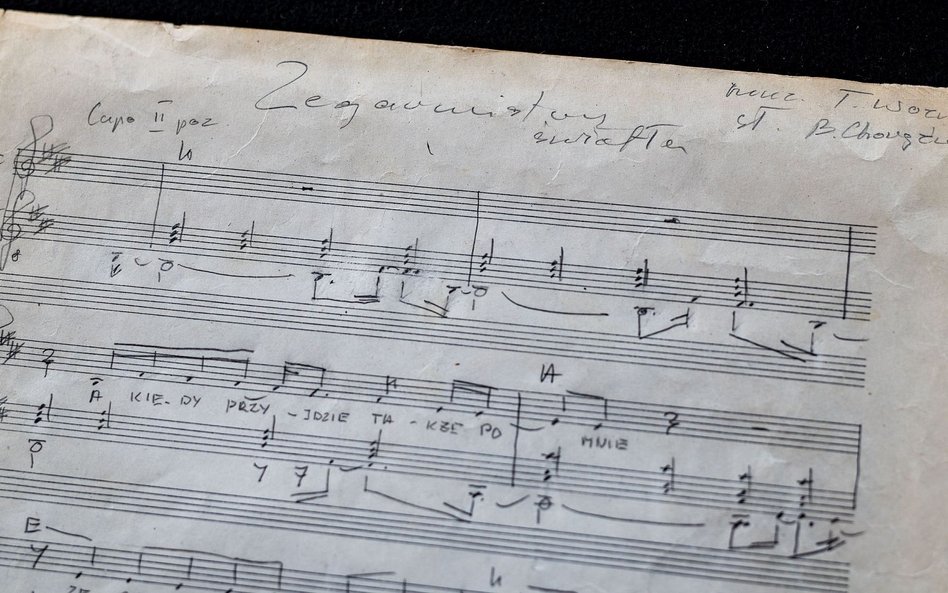 Zegarmistrz muz. T. Woźn
światła sł. B. Chorąż
Capo II poz
A
A KIE-DY PRZY-JDZIE TA-KŻE PO MNIE
E